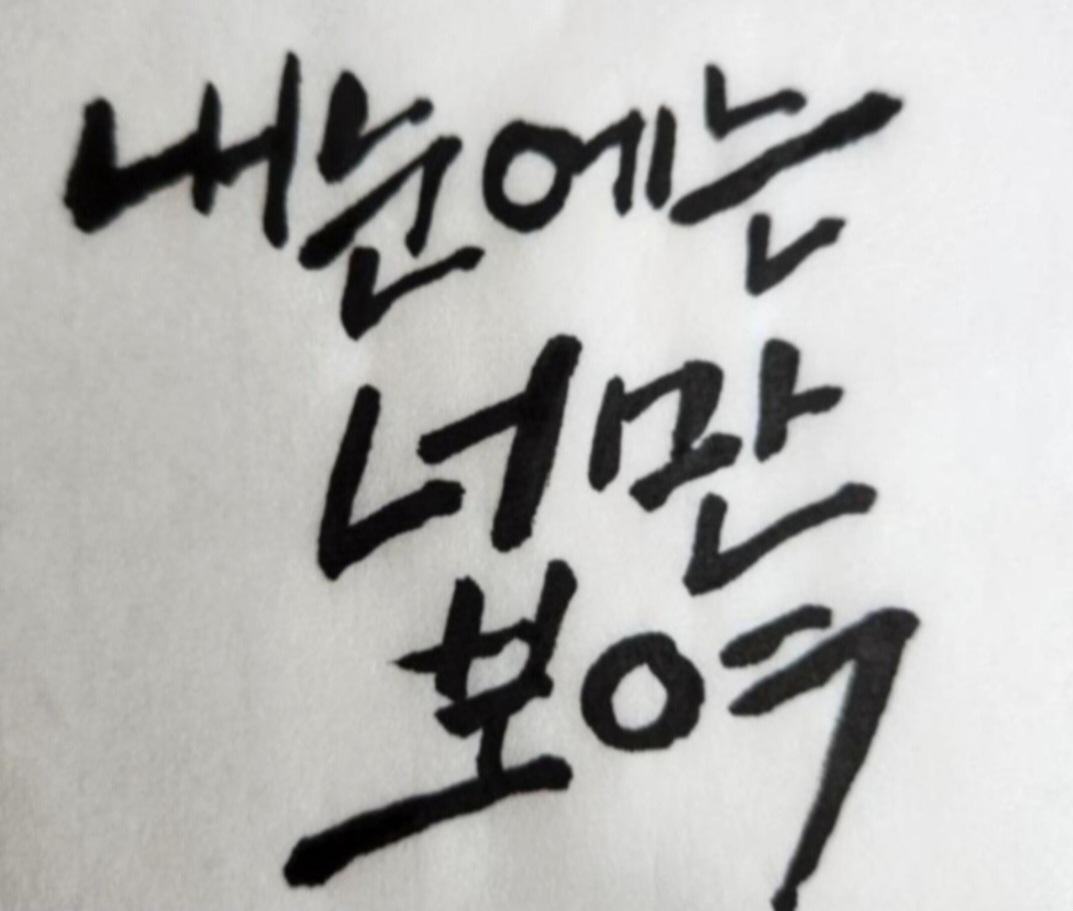 내눈에는
너만
보여